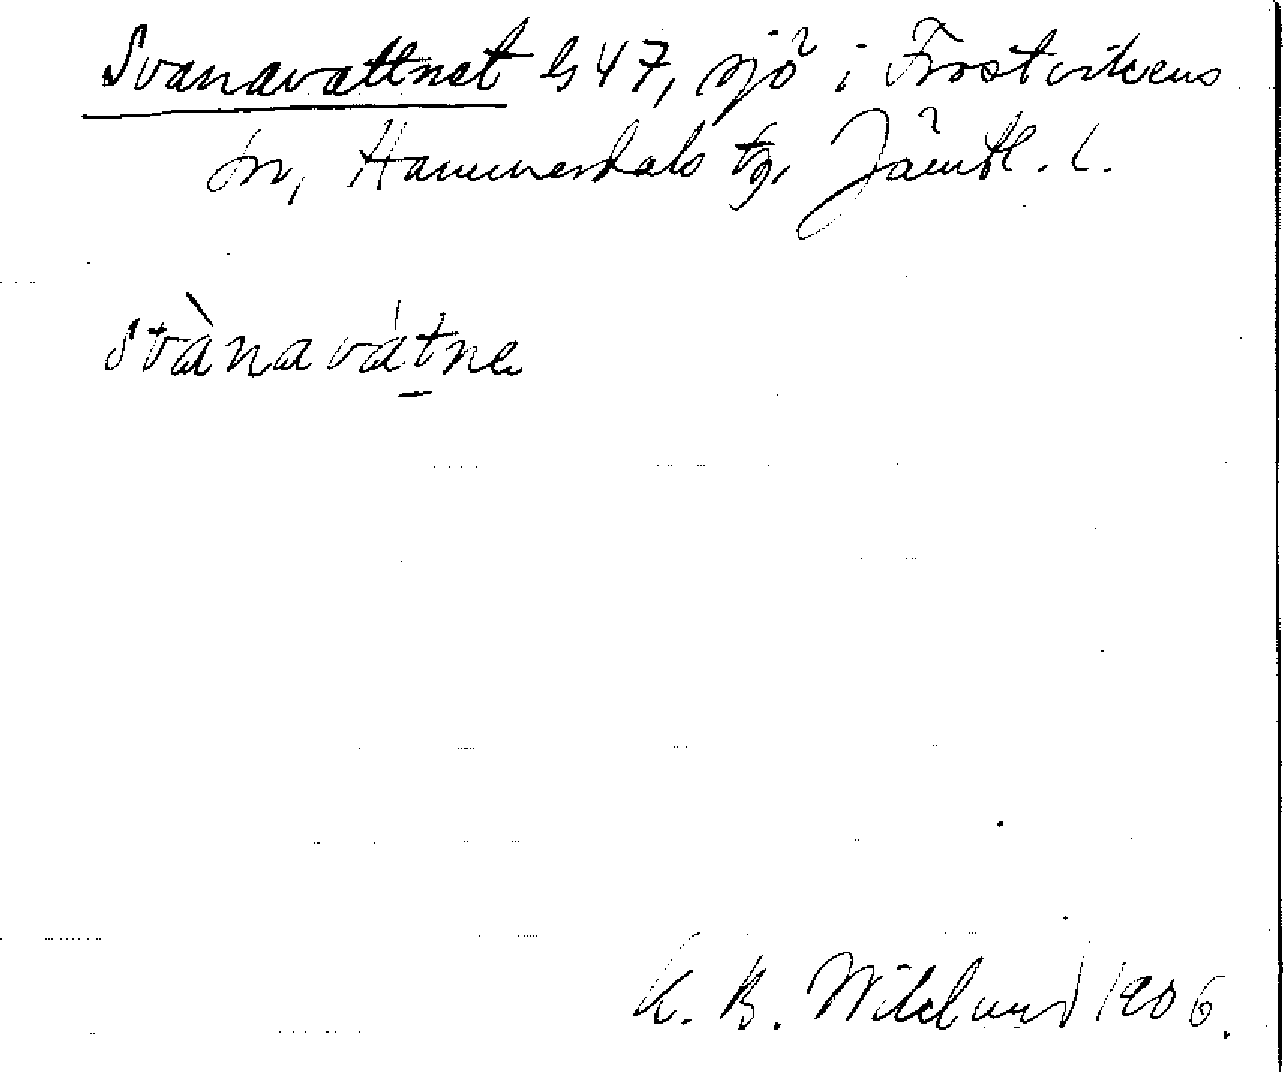 Svanavattnet G 47, sjö i Frostvikens
sn, Hammerdals tg, Jämtl. l.
svànavátne
K. B. Wiklund 1906.